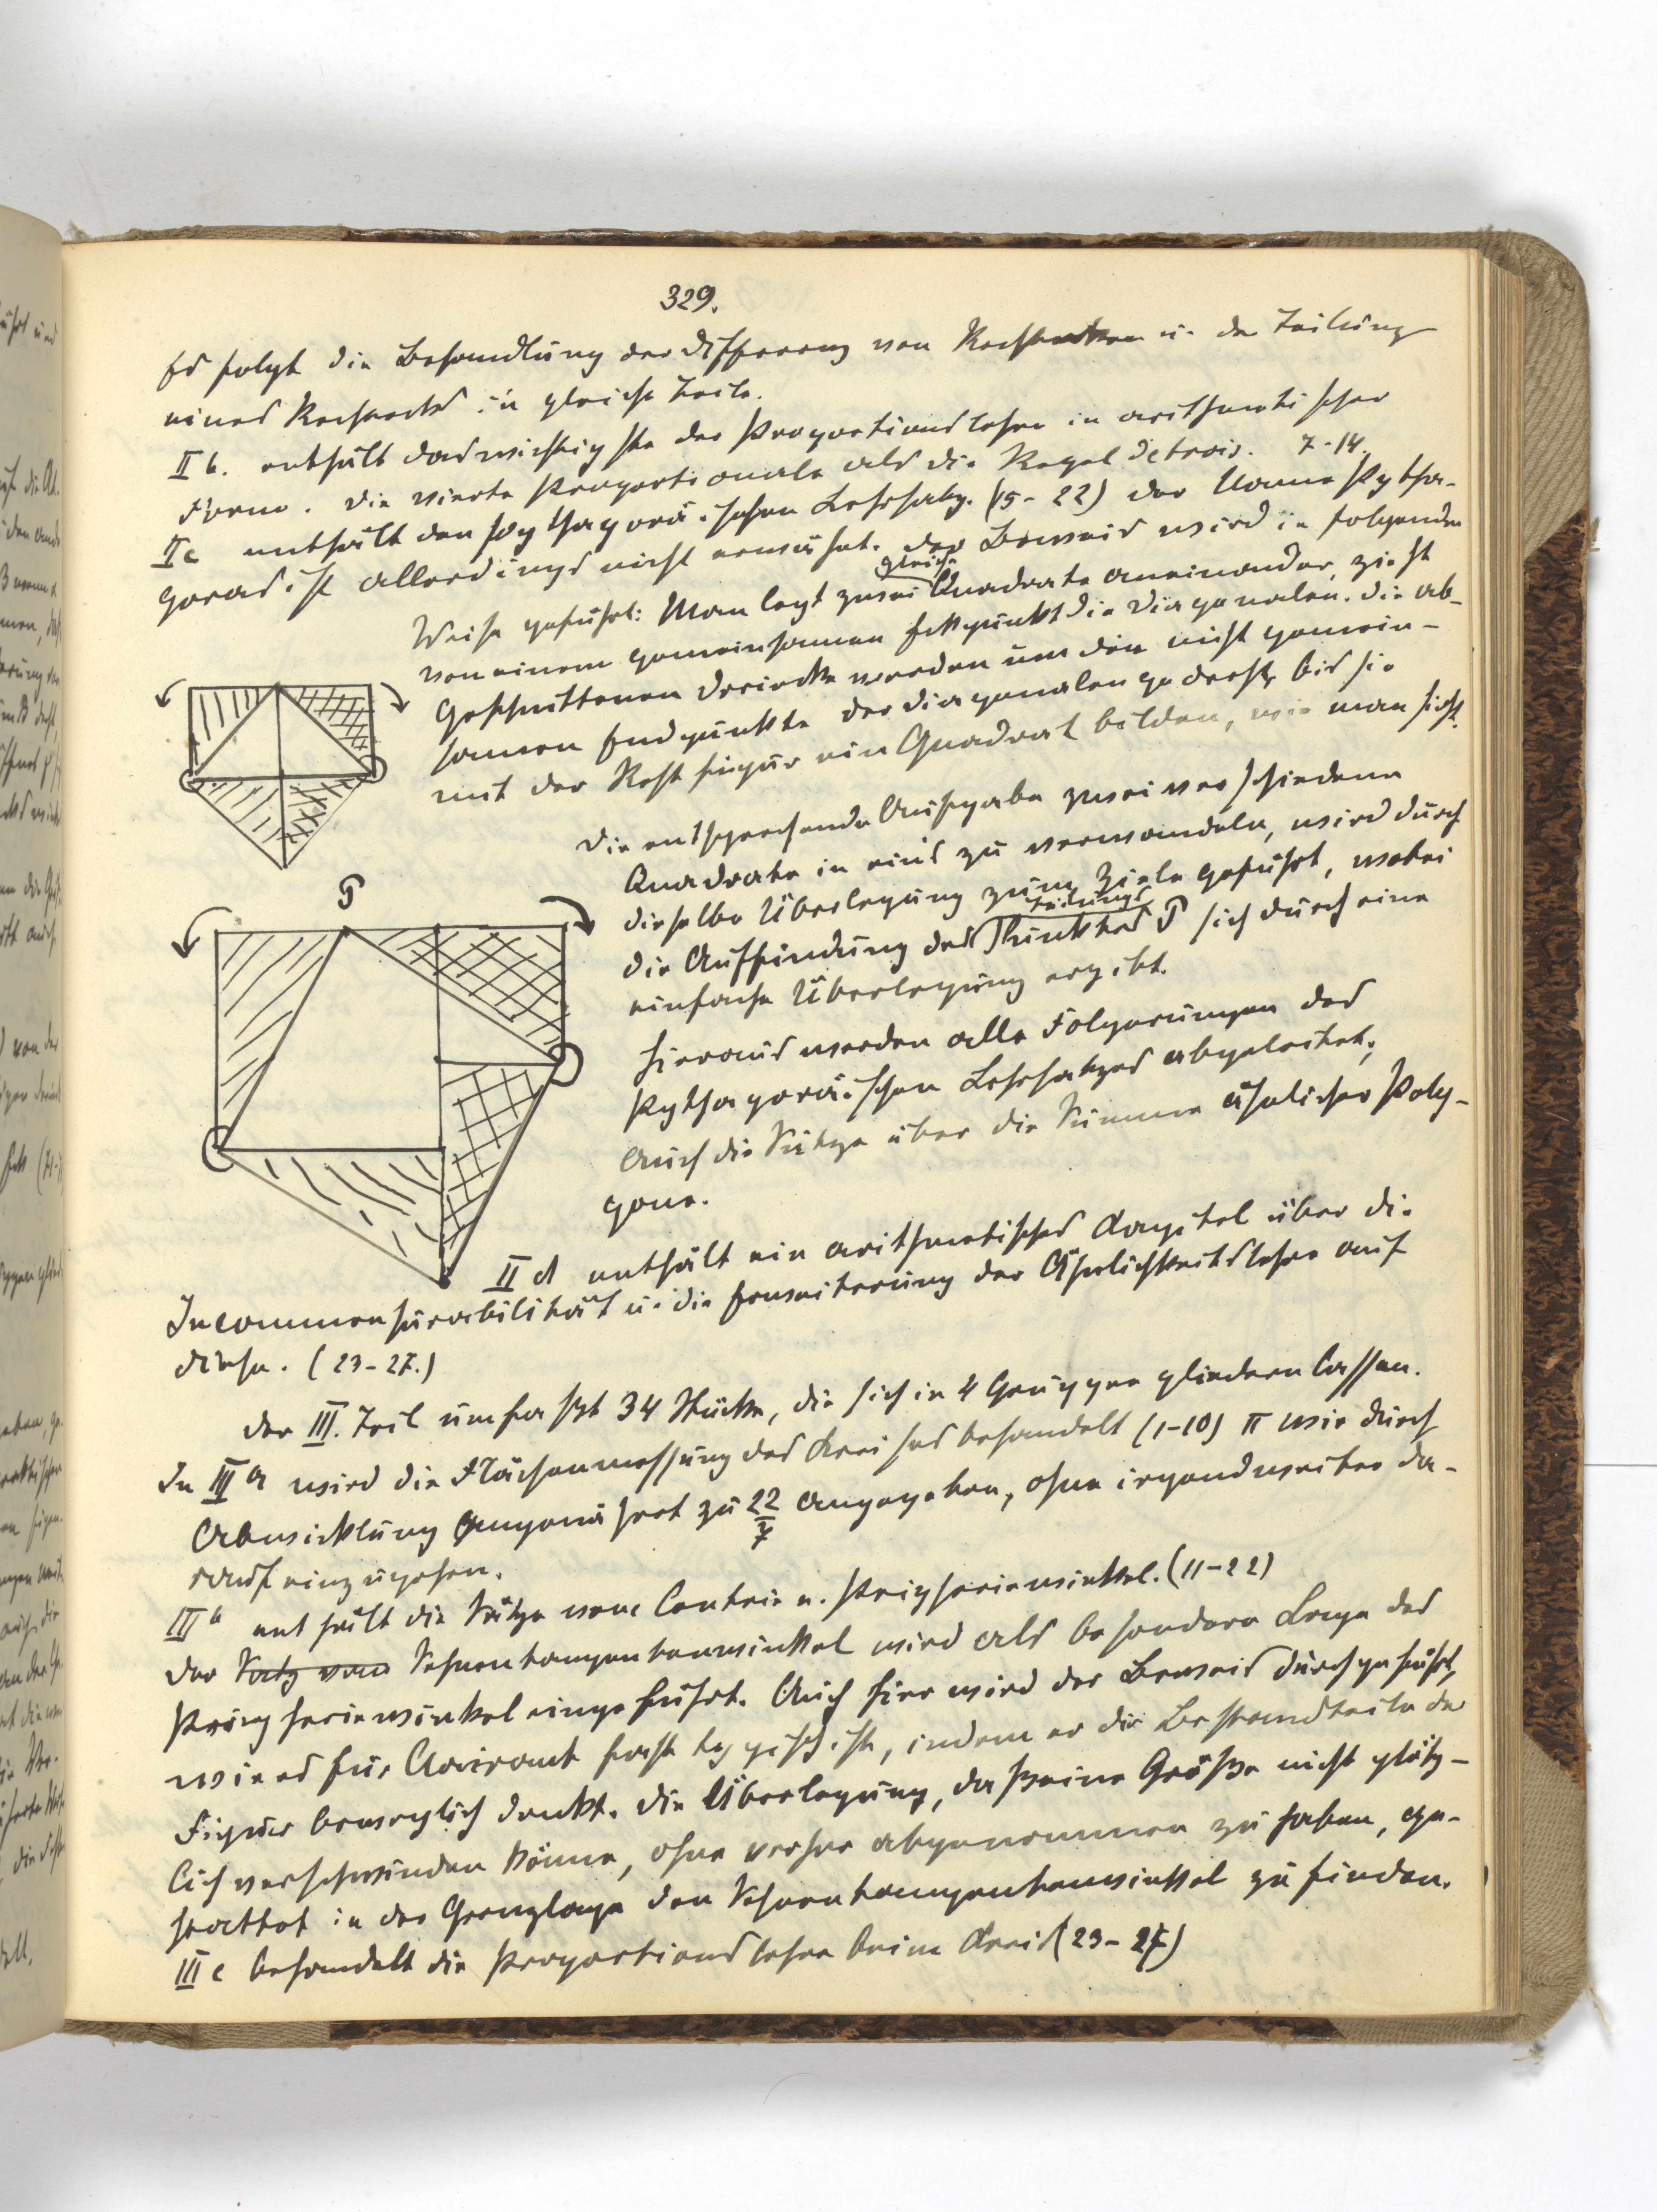 329.
Es folgt die Behandlung der Differenz von Rechtecken u. der Teilung
eines Rechtecks in gleiche Teile.
II b. enthält das wichtigste der Proportionslehre in arithmetischer
Form. Die vierte Proportionale als die Regel detrois. 7-14.
II c enthält den pythagoräischen Lehrsatz. (15-22) Der Name Pytha-
goras ist allerdings nicht erwähnt. Der Beweis wird in folgender
Weise geführt: Man legt zwei gleiche Quadrate aneinander, zieht
von einem gemeinsamen Eckpunkt die Diagonalen. Die ab-
geschnittenen Dreiecke werden um den nicht gemein-
samen Endpunkte der Diagonalen gedreht, bis sie
mit der Restfigur ein Quadrat bilden, wie man sieht.
Die entsprechende Aufgabe zwei verschiedene
Quadrate in eins zu verwandeln, wird durch
dieselbe Überlegung zum Ziele geführt, wobei
die Auffindung des Teilungs Punktes P sich durch eine
einfache Überlegung ergibt.
Hieraus werden alle Folgerungen des
Pythagoräischen Lehrsatzes abgeleitet;
auch die Sätze über die Summe ähnlicher Poly-
gone.
P
II d enthält ein arithmetisches Kapitel über die
Incommensurabilität u. die Erweiterung der Ähnlichkeitslehre auf
diese. (23-27.)
Der III. Teil umfasst 34 Stücke, die sich in 4 Gruppen gliedern lassen.
In III a wird die Flächenmessung des Kreises behandelt (1-10) π wir durch
Abwicklung angenähert zu 22/7 angegeben, ohne irgendweiter da-
rauf einzugehen.
III b enthält die Sätze vom Centrie u. Peripheriewinkel. (11-22)
Der Satz vom Sehnentangentenwinkel wird als besondere Lage des
Peripheriewinkel eingeführt. Auch hier wird der Beweis durchgeführt,
wie es für Clairaut fast typisch ist, indem er die Bestandteile der
Figur beweglich denkt. Die Überlegung, daß eine Größe nicht plötz-
lich verschwinden könne, ohne vorher abgenommen zu haben, ge-
stattet in der Grenzlage den Sehnentangentenwinkel zu finden.
III c behandelt die Proportionslehre beim Kreis (23-27)